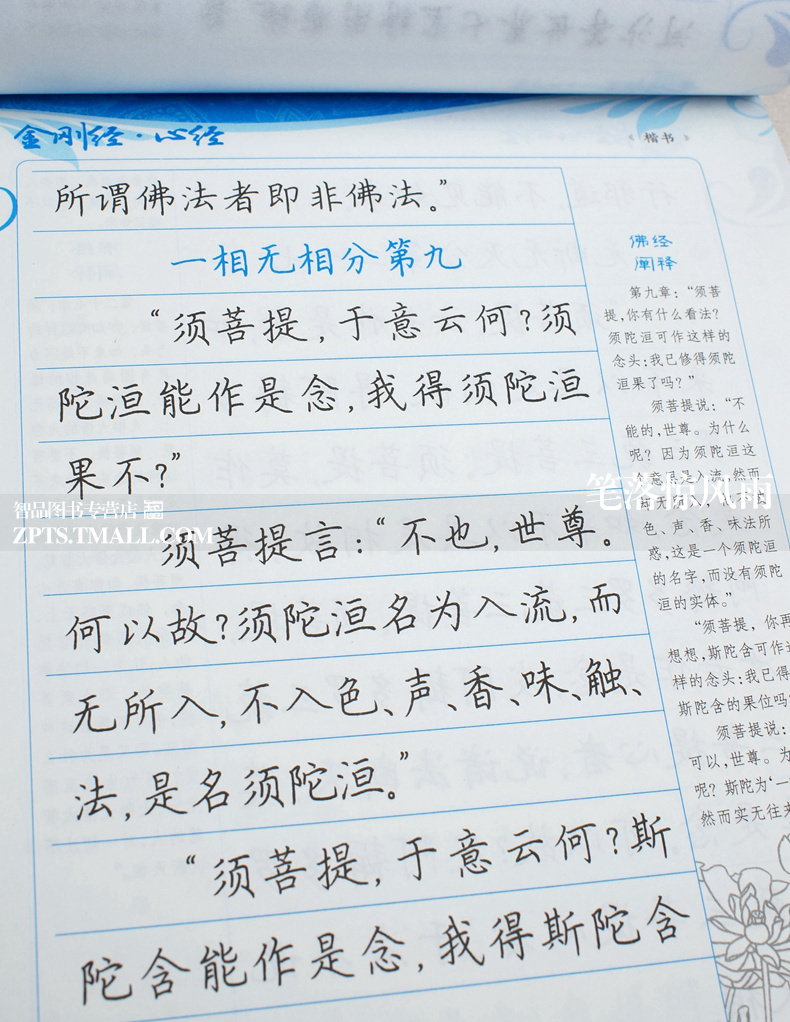 金刚经·心经
楷书
所谓佛法者即非佛法。”
一相无相分第九
“须菩提,于意云何?须
陀洹能作是念,我得须陀洹
果不?”
须菩提言:“不也,世尊。
何以故?须陀洹名为入流,而
无所入,不入色、声、香、味、触、
法,是名须陀洹。”
“须菩提,于意云何?斯
陀含能作是念,我得斯陀含
佛经
阐释
第九章:“须菩
提,你有什么看法?
须陀洹可作这样的
念头:我已修得须陀
洹果了吗?”
须菩提说:“不
能的,世尊。为什么
呢?因为须陀洹这
意思是入流,然而
无所入,他不受
色、声、香、味法所
惑,这是一个须陀洹
的名字,而没有须陀
洹的实体。”
“须菩提,你再
想想,斯陀含可作这
样的念头:我已得
斯陀含的果位吗
须菩提说:
可以,世尊。为
呢?斯陀为‘一
然而实无往来
智品图书专营店
ZPTS.TMALL.COM
笔落惊风雨